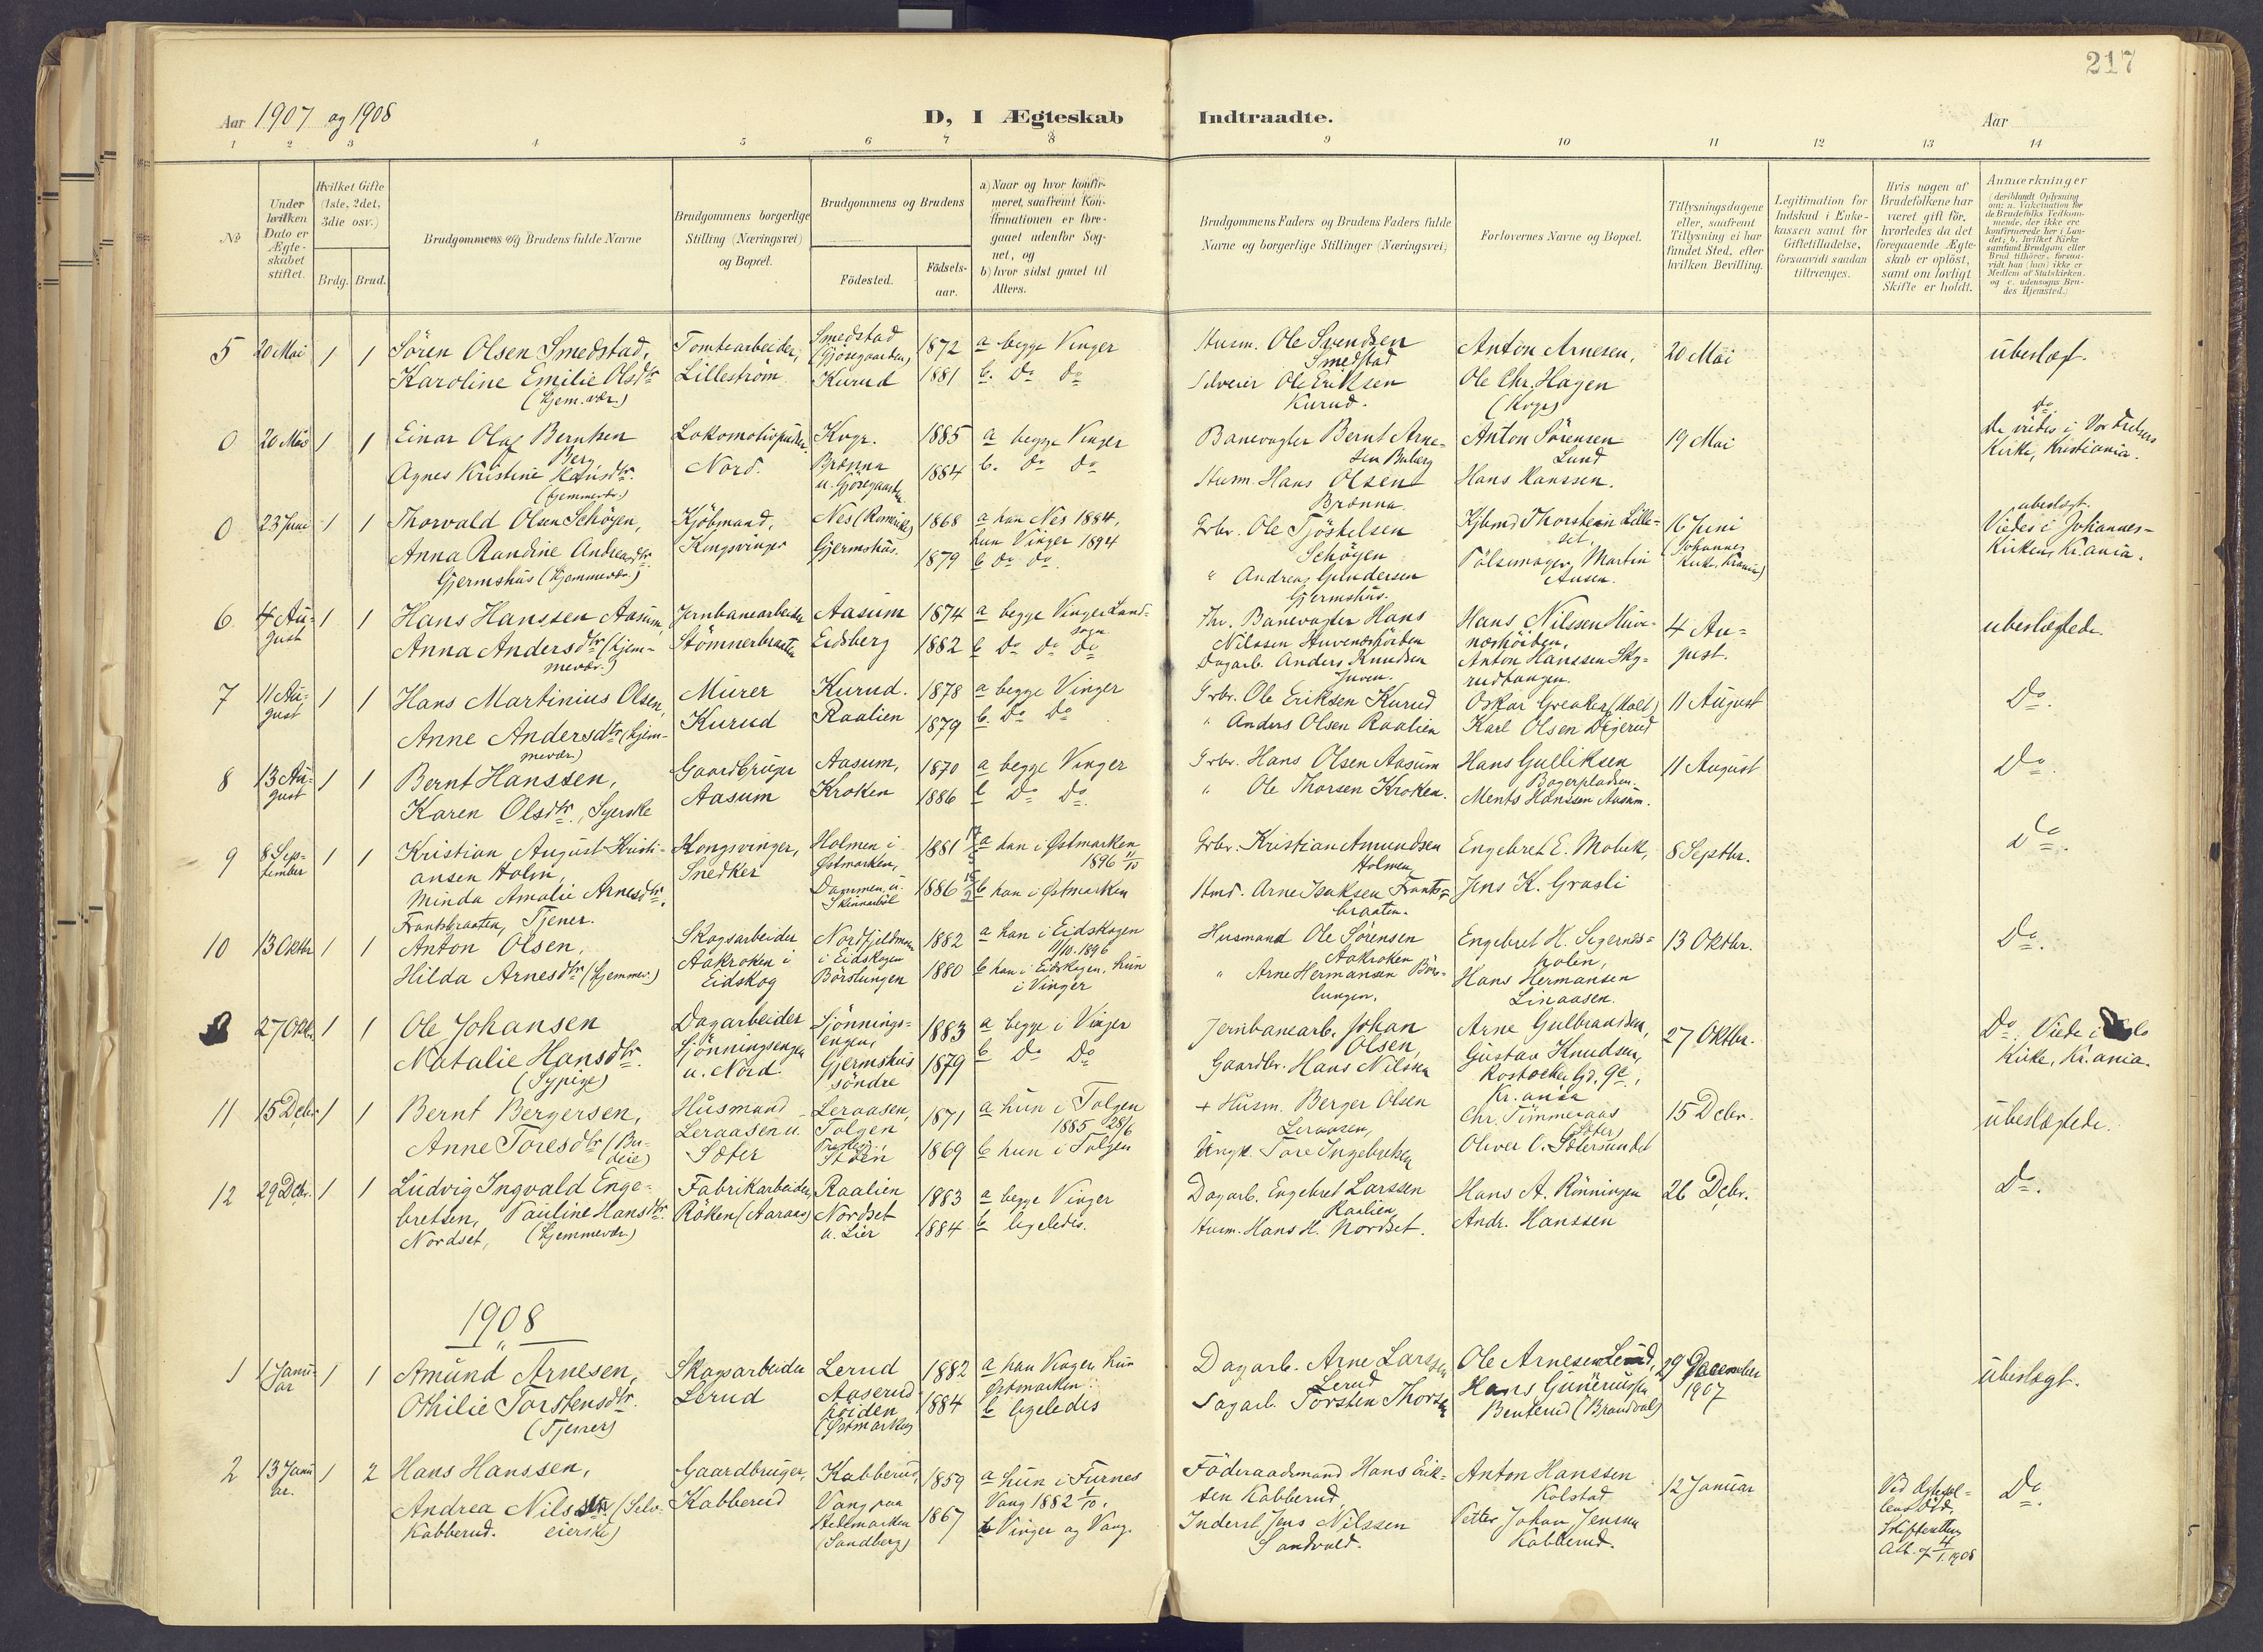 217
Aar 1907 og 1908
D, I Ægteskab Indtraadte.
Aar
1 2 3 4 5 6 7 8 9 10 11 12 13 14
No
Under hvilken Dato er Ægteskabet stiftet.
Hvilket Gifte (1ste, 2det, 3die osv.)
Brdg. Brud.
Brudgommens og Brudens fulde Navne
Brudgommens borgerlige Stilling (Næringsvei) og Bopæl.
Brudgommens og Brudens
Födested.
Födsels-aar.
a) Naar og hvor konfirmeret, saafremt Konfirmationen er foregaaet udenfor Sognet, og
b) hvor sidst gaaet til Alters.
Brudgommens Faders og Brudens Faders fulde Navne og borgerlige Stillinger (Næringsvei)
Forlovernes Navne og Bopæl.
Tillysningsdagene eller, saafremt Tillysning ei har fundet Sted, efter hvilken Bevilling.
Legitimation for Indskud i Enkekassen samt for Giftetilladelse, forsaavidt saadan tiltrænges.
Hvis nogen af Brudefolkene har været gift før, hvorledes da det foregaaende Ægteskab er oplöst, samt om lovligt Skifte er holdt.
Anmærkninger (deriblandt Oplysning om: a. Vakcination for de Brudefolks Vedkommende, der ikke ere konfirmerede her i Landet; b. hvilket Kirkesamfund Brudgom eller Brud tilhører, forsaavidt han (hun) ikke er Medlem af Statskirken, og c. udensogns Brudes Hjemsted.)
5 20 Mai 1 1 Sören Olsen Smedstad, Tomtearbeider, Smedstad (Gjøsegaarden) 1872 a begge Vinger Husm. Ole Svendsen Smedstad Anton Arnesen, 20 Mai ubeslægt.
Karoline Emilie Olsdtr (hjem. vær.) Lillestrøm Kurud 1881 b. Do Do Selveier Ole Eriksen Kurud. Ole Chr. Hagen (Kvgr)
0 20 Mai 1 1 Einar Olaf Berntsen Berg Kvgr. 1885 a begge Vinger Banevogter Bernt Arnesen Anton Sörensen Lund 19 Mai Do
de viedes i Vor Frelsers Kirke, Kristiania.
Agnes Kristine Hansdtr. (hjemmevær.) Nord. Brænna u. Gjøsegaarden 1884 b. Do Do Husm. Hans Olsen Brænna. Hans Hanssen.
0 23 Juni 1 1 Thorvald Olsen Schøyen, Kjöbmand, Nes (Romerike) 1868 a han Nes 1884, hun Vinger 1894 Grbr. Ole Schøyen Kjbmd Thorstein Lilleset, 16 Juni (Johannes Kirke, Krania) ubeslægt.
Viedes i Johannes-Kirken, Kr.ania.
Anna Randine Andreasdtr. Gjermshus (hjemmevær.) Kongsvinger Gjermshus. 1879 b do do. " Andreas Gundersen Gjermshus. Pölsemager Martin
6 4 August 1 1 Hans Hanssen Aasum, Jernbanearbeider Aasum 1874 a begge Vinger Landsogn Fhv. Banevogter Hans Nilssen Hans Nilssen 4 August. ubeslægtede.
Anna Andersdtr (hjemmevær.) Stömnerbraaten Eidsberg 1882 b Do Do Do Dagarb. Anders Knudsen Anton Hanssen
7 11 August 1 1 Hans Martinius Olsen, Murer Kurud. 1878 a begge Vinger Grbr. Ole Eriksen Kurud Oskar Greaker 11 August Do.
Anne Andersdtr (hjemmevær) Kurud Raalien 1879 b. Do Do " Anders Olsen Raalien Karl Olsen Digerud
8 13 August 1 1 Bernt Hanssen, Gaardbruger Aasum, 1870 a begge Vinger Grbr. Hans Olsen Aasum Hans Gulliksen 11 August Do.
Karen Olsdtr., Syerske Aasum Kroken 1886 b Do Do " Ole Thorsen Kroken. Ments Hanssen Aasum.
9 8 September 1 1 Kristian August Kristiansen Holm, Kongsvinger, Snedker Holmen i Østmarken, 1881 a han i Østmarken 1896 11/10 Grbr. Kristian Amundsen Holmen Engebret E. Mobæk, 8 Septbr. Do.
Minda Amalie Arnesdtr. Frantsbraaten, Tjener. Dammen u. Skinnarböl 1886 b han i Østmarken Hmd. Arne Isaksen Frantsbraaten. Jens K. Grasli
10 13 Oktbr 1 1 Anton Olsen, Skogsarbeider i Eidskogen 1882 a han i Eidskogen 11/10. 1896 Husmand Ole Sørensen Aakroken Engebret H. 13 Oktbr. Do.
Hilda Arnesdtr (hjemmev.) Aakroken i Eidskog Börslungen 1880 b han i Eidskogen, hun i Vinger " Arne Hermansen Börslungen. Hans Hermansen Linaasen.
27 Oktbr. 1 1 Ole Johansen Dagarbeider Sjönningsengen, 1883 a begge i Vinger Jernbanearb. Johan Olsen, Arne Gulbrandsen, 27 Oktbr. Do. Viede i Kirke, Kr.ania.
Natalie Hansdtr. (Sypige) Sjönningsengen u. Nord. Gjermshus söndre 1879 b Do Do Gaardbr. Hans Nilsen Gustav Knudsen, Kr.ania
11 15 Decbr 1 1 Bernt Bergersen, Husmand Leraasen, 1871 a hun i Tolgen 1885 28/6 + Husm. Berger Olsen Leraasen, Chr. Timmeraas 15 Decbr. ubeslægtede.
Anne Toresdtr (Budeie) Leraasen u. Sæter Tolgen 1869 b hun i Tolgen Ungk. Tore Ingebretsen Oliver O. Sætersundet
12 29 Decbr. 1 1 Ludvig Ingvald Engebretsen, Fabrikarbeider, Raalien 1883 a begge Vinger Dagarb. Engebret Larssen Raalien Hans A. Rönningen 26 Decbr. Do.
Pauline Hansdtr. Nordset, (hjemmevær) Röken (Aaraas) Nordset u. Lier 1884 b ligeledes. Husm. Hans H. Nordset. Andr. Hanssen
1908
1 1 Januar 1 1 Amund Arnesen, Skogsarbeider Lerud 1882 a han Vinger, hun Østmarken Dagarb. Arne Larssen Lerud Ole Arnesen Lerud, 29 December 1907 ubeslægt.
Othilie Torstensdtr. (Tjener) Lerud Aaserud (Østmarken) 1884 b ligeledes Dagarb. Torsten Thorsen Hans Gunerussen Benterud (Brandval)
2 13 Januar. 1 2 Hans Hanssen, Gaardbruger, Kabberud 1859 a hun i Furnes Vang 1882 1/10. Föderaadsmand Hans Eriksen Kabberud, Anton Hanssen Kolstad 12 Januar Ved Do.
Andrea Nilsdtr. (Selveierske) Kabberud. Kabberud Vang paa Hedemarken (Sandberg) 1867 b Vinger og Vang. Inderst Jens Nilssen Sandvold. Petter Johan Jensen Kabberud. Skifteatt. 4/1.1908